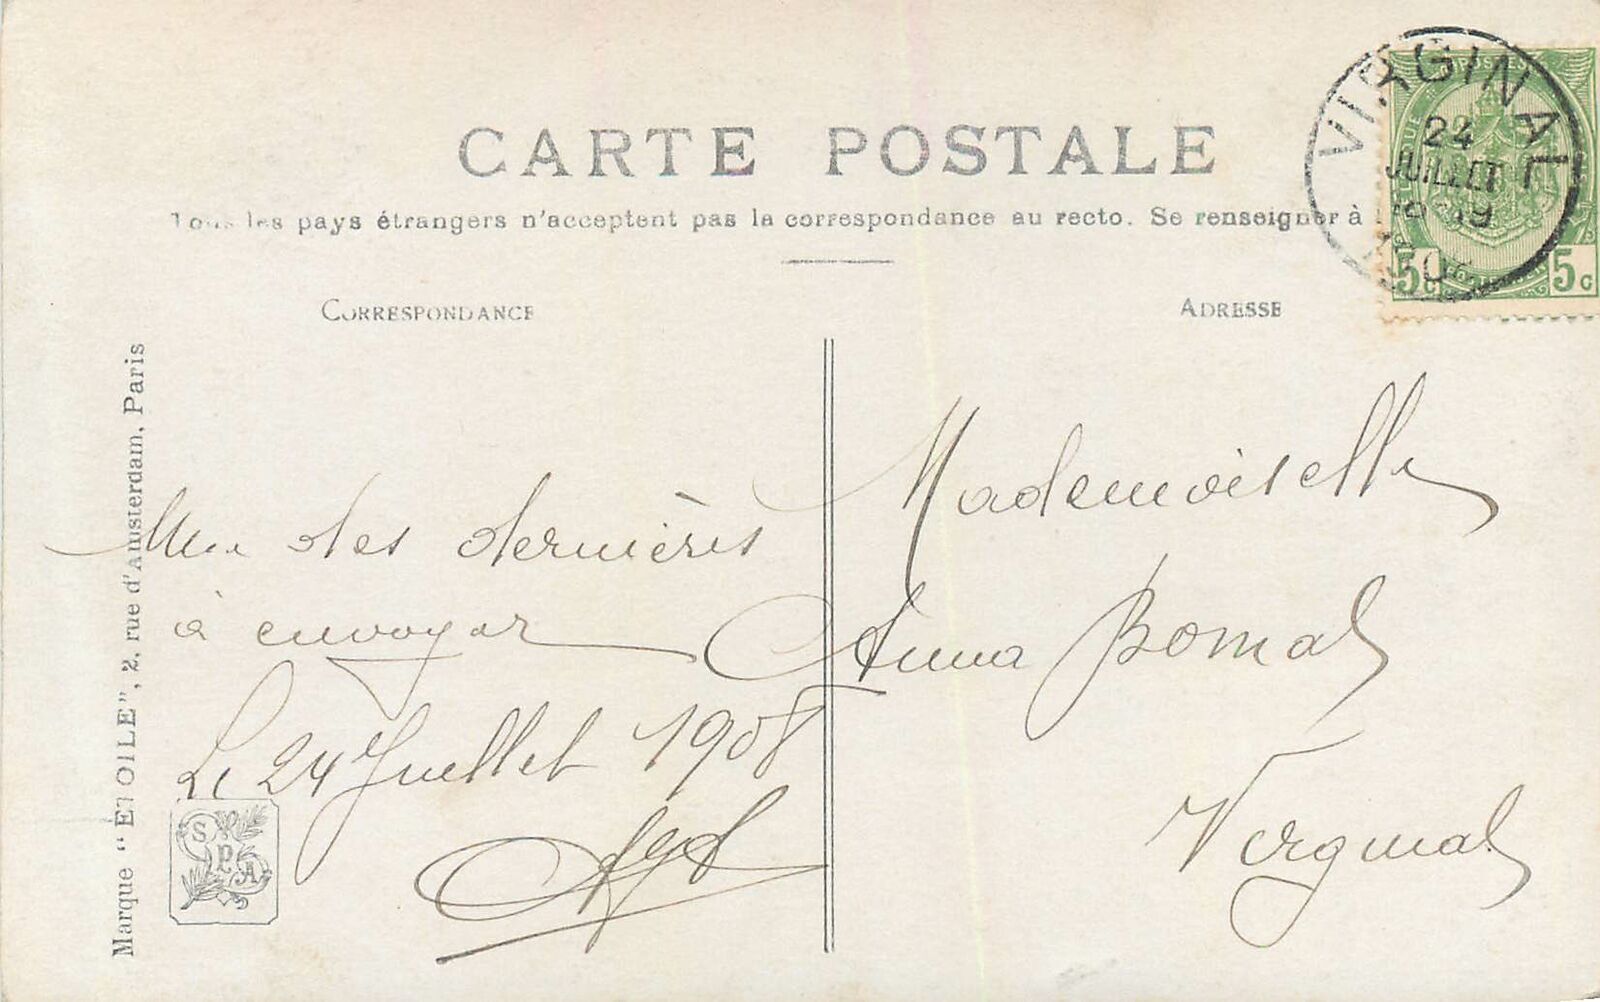 CARTE POSTALE
Tous les pays étrangers n'acceptent pas la correspondance au recto. Se renseigner à
CORRESPONDANCE
ADRESSE
VIRGINAL
24
JUILLET
5c 5c
Marque "ÉTOILE", 2, rue d'Amsterdam, Paris
Une des dernières
à envoyer
Le 24 Juillet 1908
SPA
Mademoiselle
Anna Bomal
Virginal